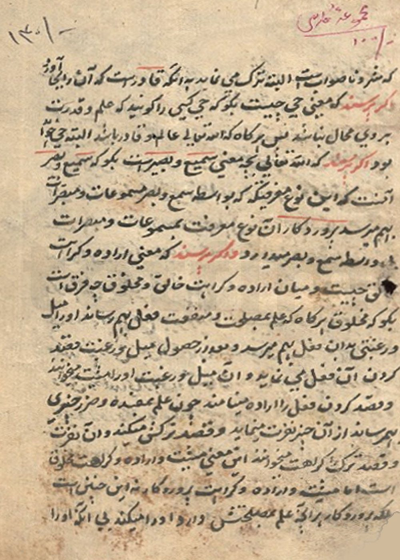 که شر و ناصواب است البته ترک می نماید به آنکه قادر است که آن را بجا آورد
و اگر پرسند که معنی حی چیست بگو که حی کسی را گویند که علم و قدرت
بر وی محال نباشد پس هرگاه که الله تعالی عالم و قادر باشد البته حی خواهد
بود و اگر پرسند که الله تعالی بچه معنی سمیع و بصیر است بگو که سمیع و بصیر
آنست که این نوع معرفتی که بواسطه سمع و بصر مسموعات و مبصرات
بهم میرسد پروردگار آن نوع معرفت بمسموعات و مبصرات
بی واسطه سمع و بصر میدارد و اگر پرسند که معنی اراده و کراهت
خالق چیست و میان اراده و کراهت خالق و مخلوق چه فرق است
بگو که مخلوق هرگاه که علم بمصلحت و منفعت فعلی بهم رساند او را میل
و رغبتی بدان فعل بهم میرسد و بعد از حصول میل و رغبت قصد
کردن آن فعل می نماید و آن میل و رغبت او را مشیت میخوانند
و قصد کردن فعل را اراده مینامند چون علم بمفسده و ضرر چیزی
بهم رساند از آن چیز نفرت مینماید و قصد ترکش میکند و آن نفرت
و قصد ترک را کراهت میخوانند این معنی مشیت و اراده و کراهت مخلوق
است اما مشیت و اراده و کراهت پروردگار نه این چنین است
بلکه پروردگار بر آنچه علم بمصلحتش دارد او را میکند بی آنکه او را